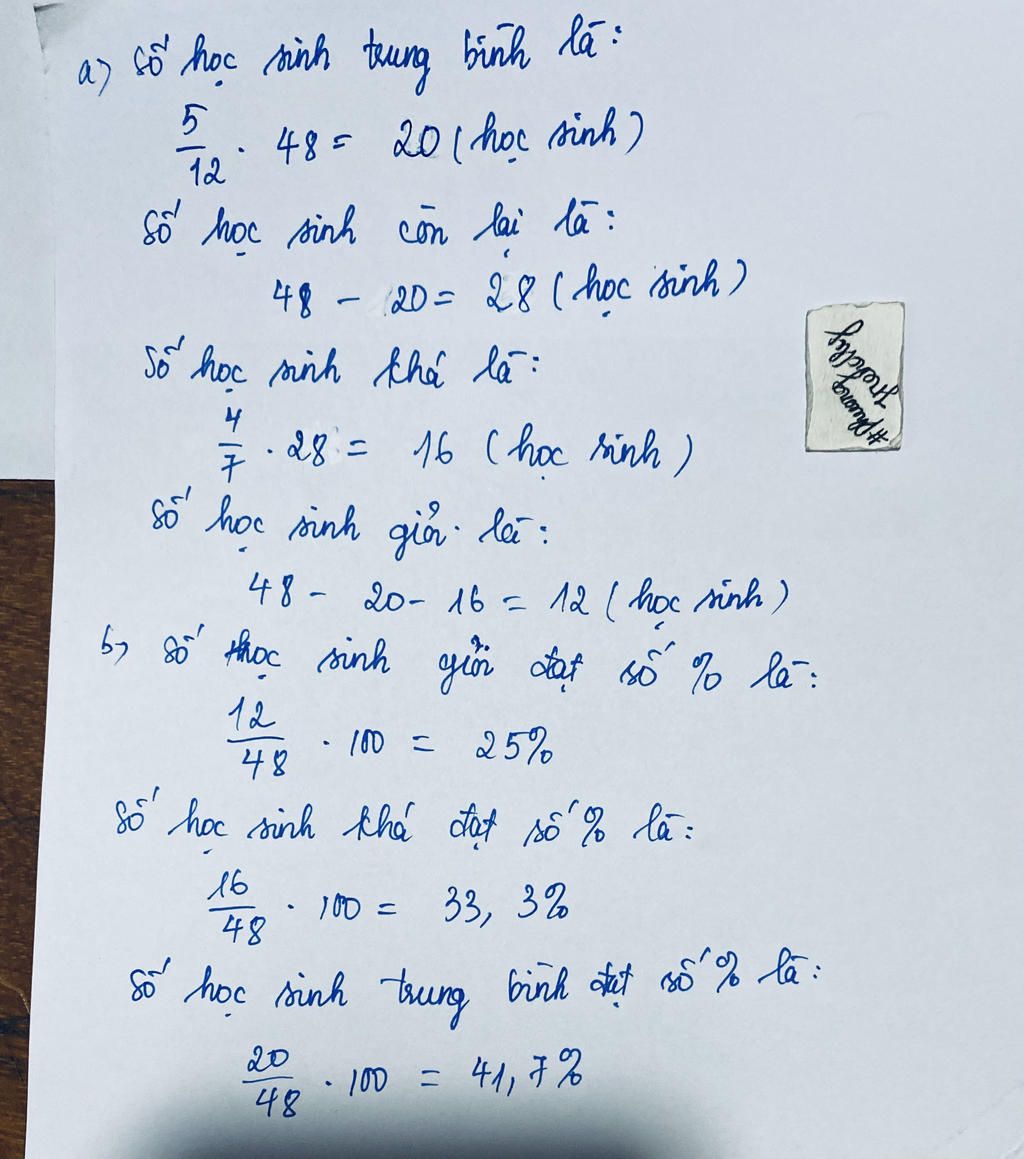 a) Số học sinh trung bình là:
5/12 . 48 = 20 (học sinh)
Số học sinh còn lại là:
48 - 20 = 28 (học sinh)
Số học sinh khá là:
4/7 . 28 = 16 (học sinh)
Số học sinh giỏi là:
48 - 20 - 16 = 12 (học sinh)
b) Số học sinh giỏi đạt số % là:
12/48 . 100 = 25%
Số học sinh khá đạt số % là:
16/48 . 100 = 33,3%
Số học sinh trung bình đạt số % là:
20/48 . 100 = 41,7%
#Phuong